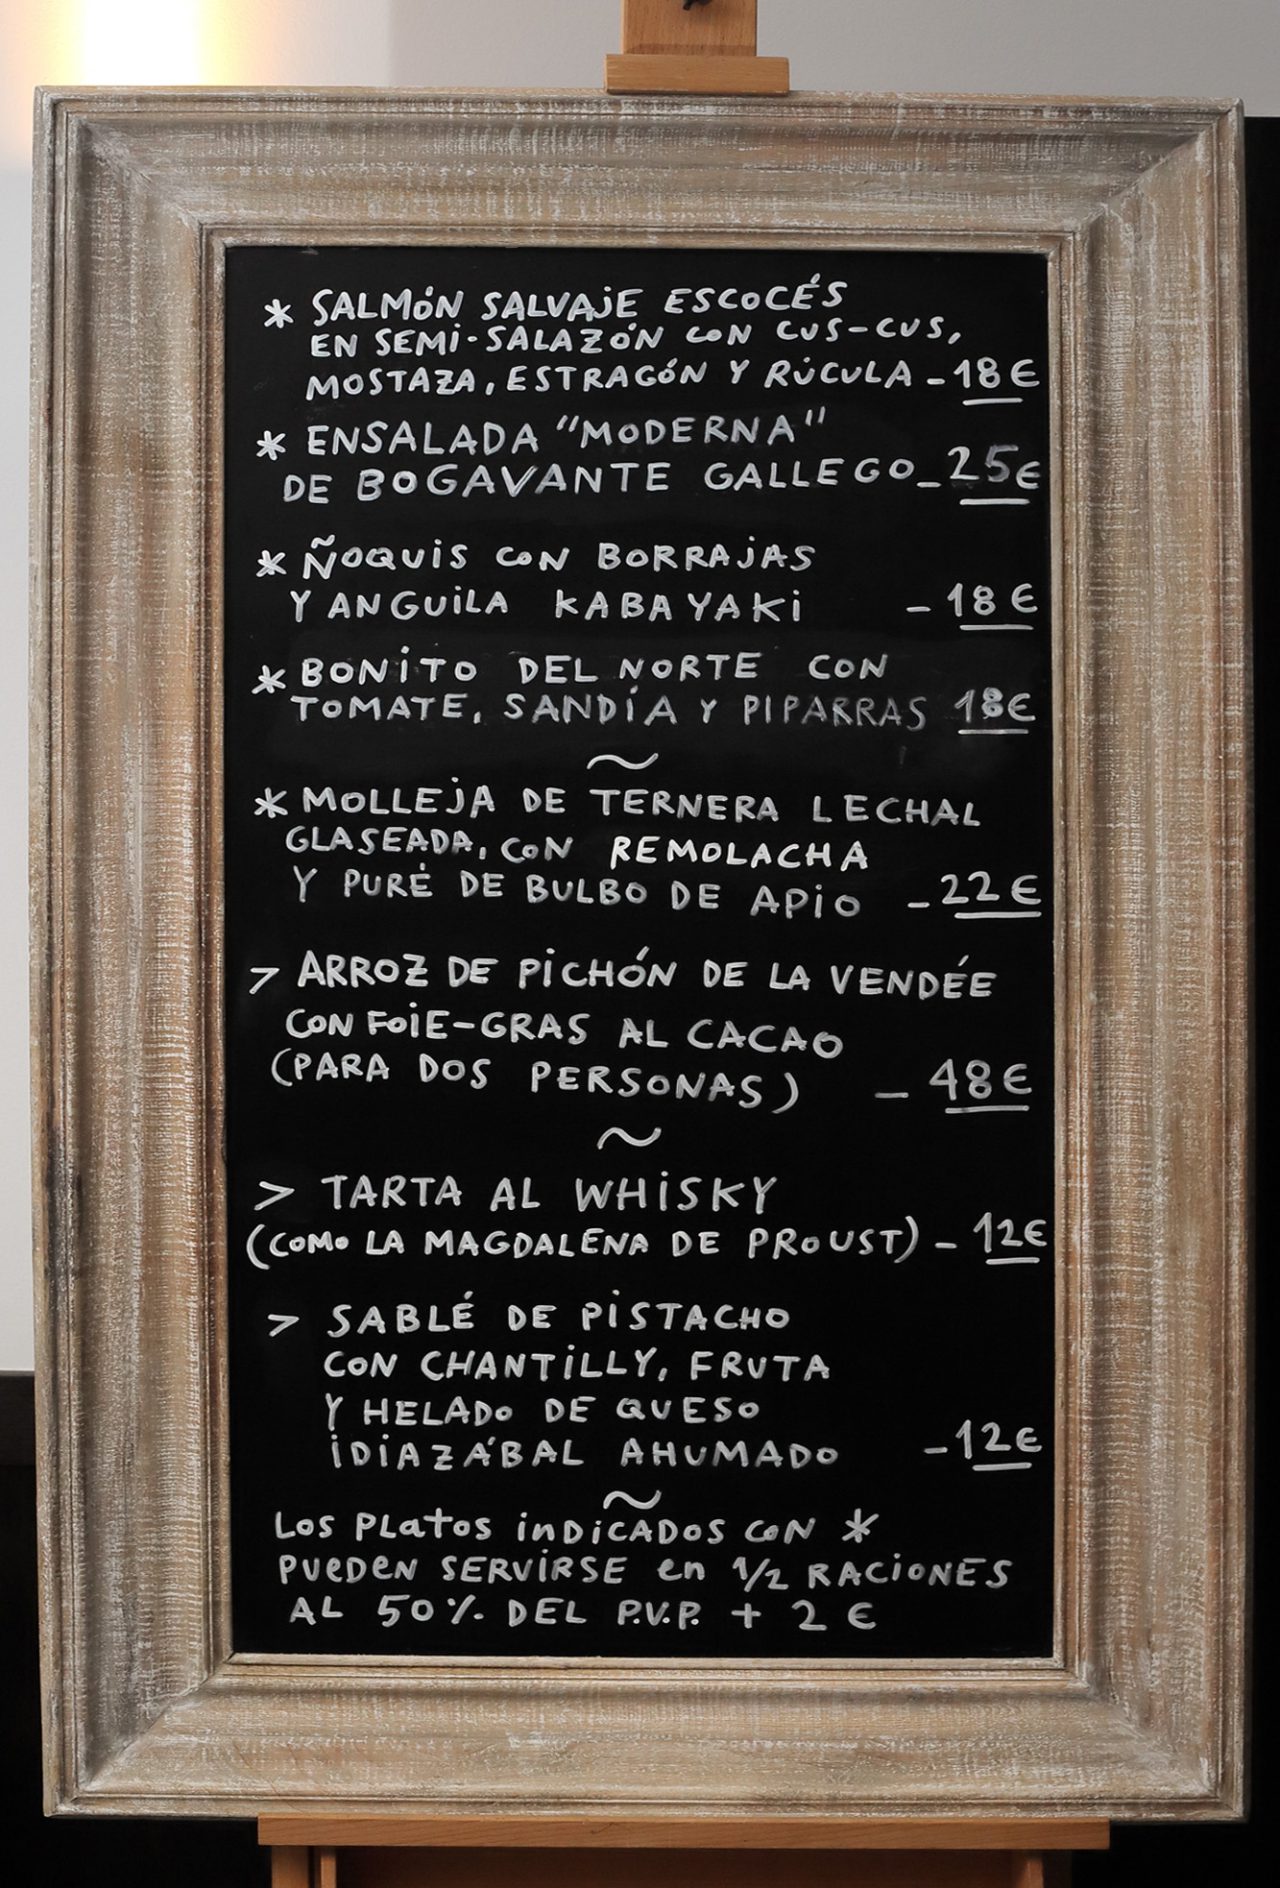 * SALMÓN SALVAJE ESCOCÉS
EN SEMI-SALAZÓN CON CUS-CUS,
MOSTAZA, ESTRAGÓN Y RÚCULA - 18€
* ENSALADA "MODERNA"
DE BOGAVANTE GALLEGO - 25€
* ÑOQUIS CON BORRAJAS
Y ANGUILA KABAYAKI - 18€
* BONITO DEL NORTE CON
TOMATE, SANDÍA Y PIPARRAS 18€
~
* MOLLEJA DE TERNERA LECHAL
GLASEADA, CON REMOLACHA
Y PURÉ DE BULBO DE APIO - 22€
> ARROZ DE PICHÓN DE LA VENDÉE
CON FOIE-GRAS AL CACAO
(PARA DOS PERSONAS) - 48€
~
> TARTA AL WHISKY
(COMO LA MAGDALENA DE PROUST) - 12€
> SABLÉ DE PISTACHO
CON CHANTILLY, FRUTA
Y HELADO DE QUESO
IDIAZÁBAL AHUMADO - 12€
~
LOS PLATOS INDICADOS CON *
PUEDEN SERVIRSE EN 1/2 RACIONES
AL 50% DEL P.V.P. + 2 €